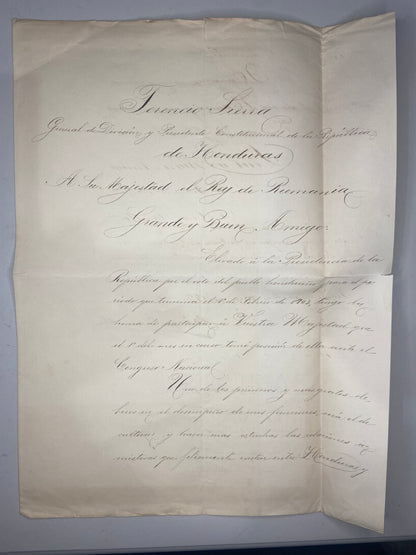 Terencio Sierra
General de División y Presidente Constitucional de la República
de Honduras
A Su Majestad el Rey de Rumania
Grande y Buen Amigo:
Elevado á la Presidencia de la
República por el voto del pueblo hondureño para el pe-
ríodo que terminará el 1º de Febrero de 1903, tengo la
honra de participar á Vuestra Majestad que
el 1º del mes en curso tomé posesión de ella ante el
Congreso Nacional.
Uno de los primeros y más gratos de-
beres en el desempeño de mis funciones será el de
cultivar y hacer más estrechas las relaciones a-
mistosas que felizmente existen entre Honduras y